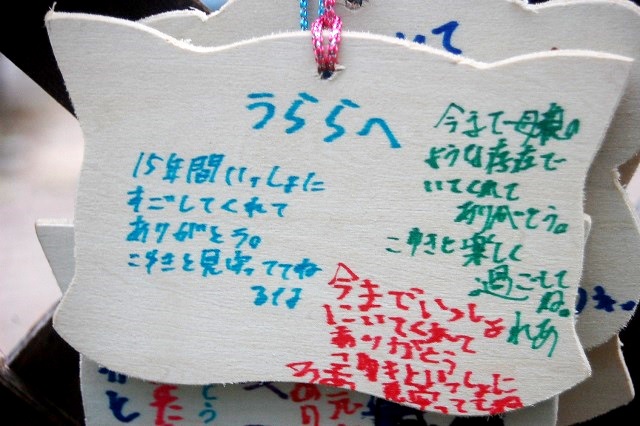 うららへ
15年間いっしょに
すごしてくれて
ありがとう。
こゆきと見守っててね
るは
今まで母親の
ような存在で
いてくれて
ありがとう。
こゆきと楽しく
過ごして
ね。
れあ
今までいっしょ
にいてくれて
ありがとう
こゆきといっしょに
見守っててね
いて